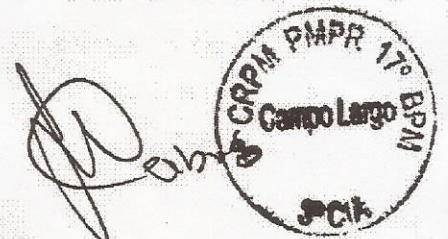 CRPM PMPR 17º BPM
Campo Largo
3ª CIA